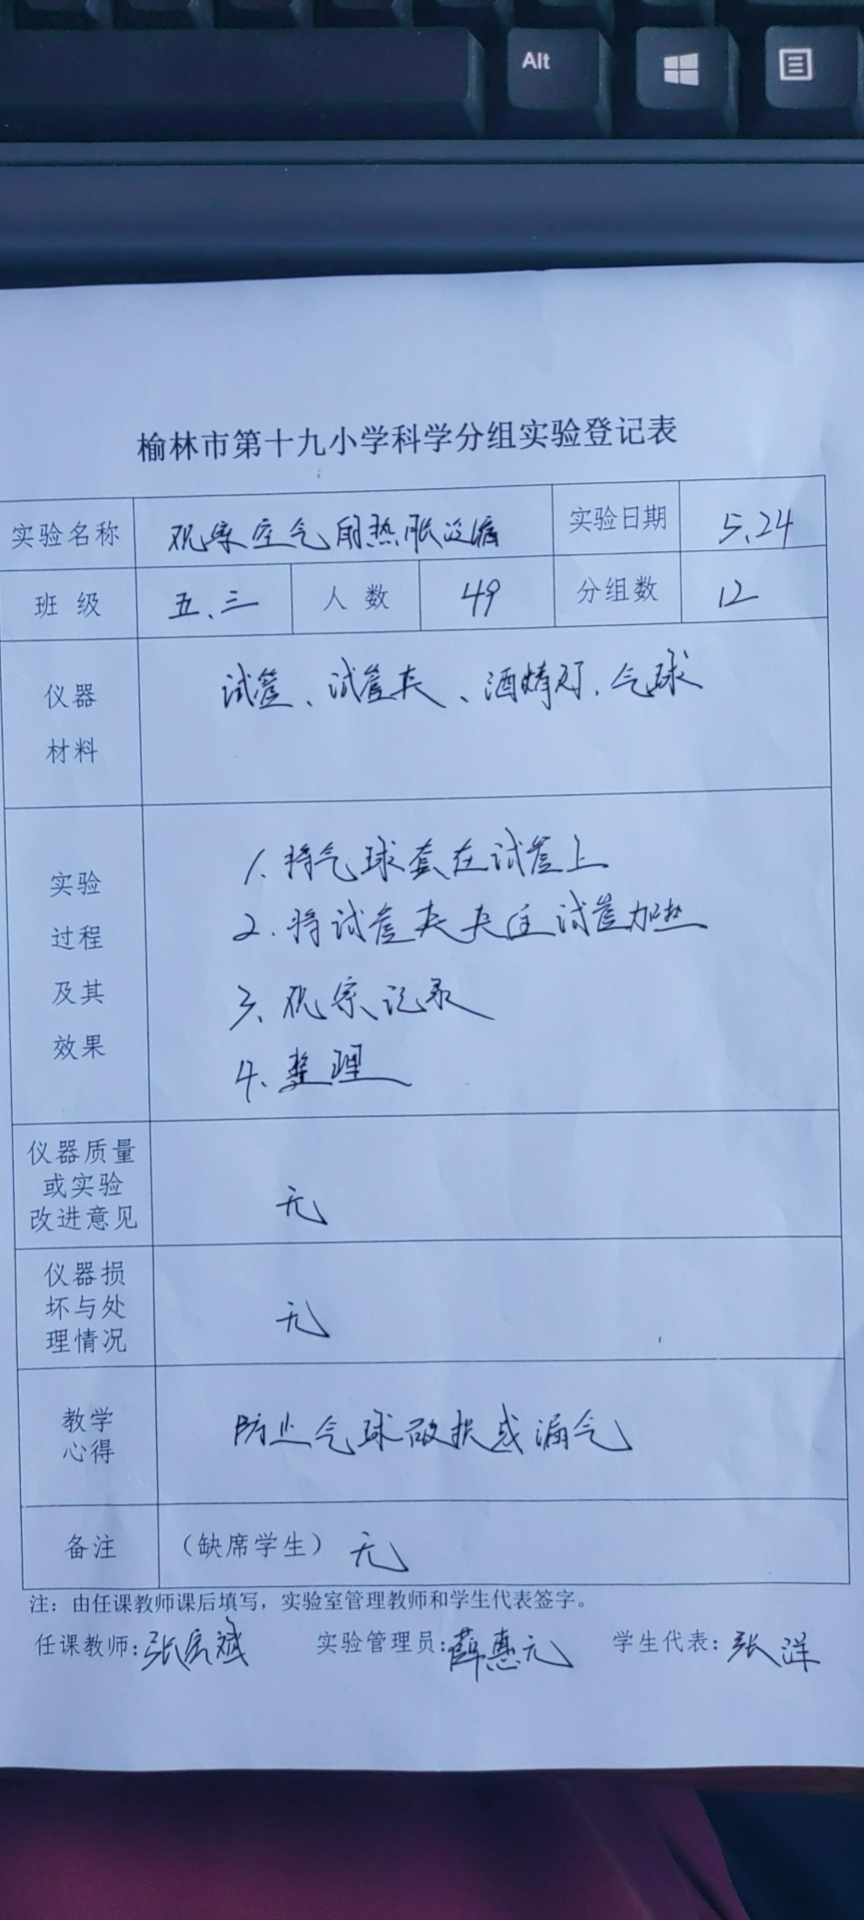 Alt
榆林市第十九小学科学分组实验登记表
实验名称 观察空气的热胀冷缩 实验日期 5.24
班 级 五、三 人 数 49 分组数 12
仪器
材料
试管、试管夹、酒精灯、气球
实验
过程
及其
效果
1. 将气球套在试管上
2. 将试管夹夹住试管加热
3、观察记录
4、整理
仪器质量
或实验
改进意见
无
仪器损
坏与处
理情况
无
教学
心得
防止气球破损或漏气
备注 (缺席学生) 无
注：由任课教师课后填写，实验室管理教师和学生代表签字。
任课教师：张宏斌 实验管理员：薛惠元 学生代表：张洋